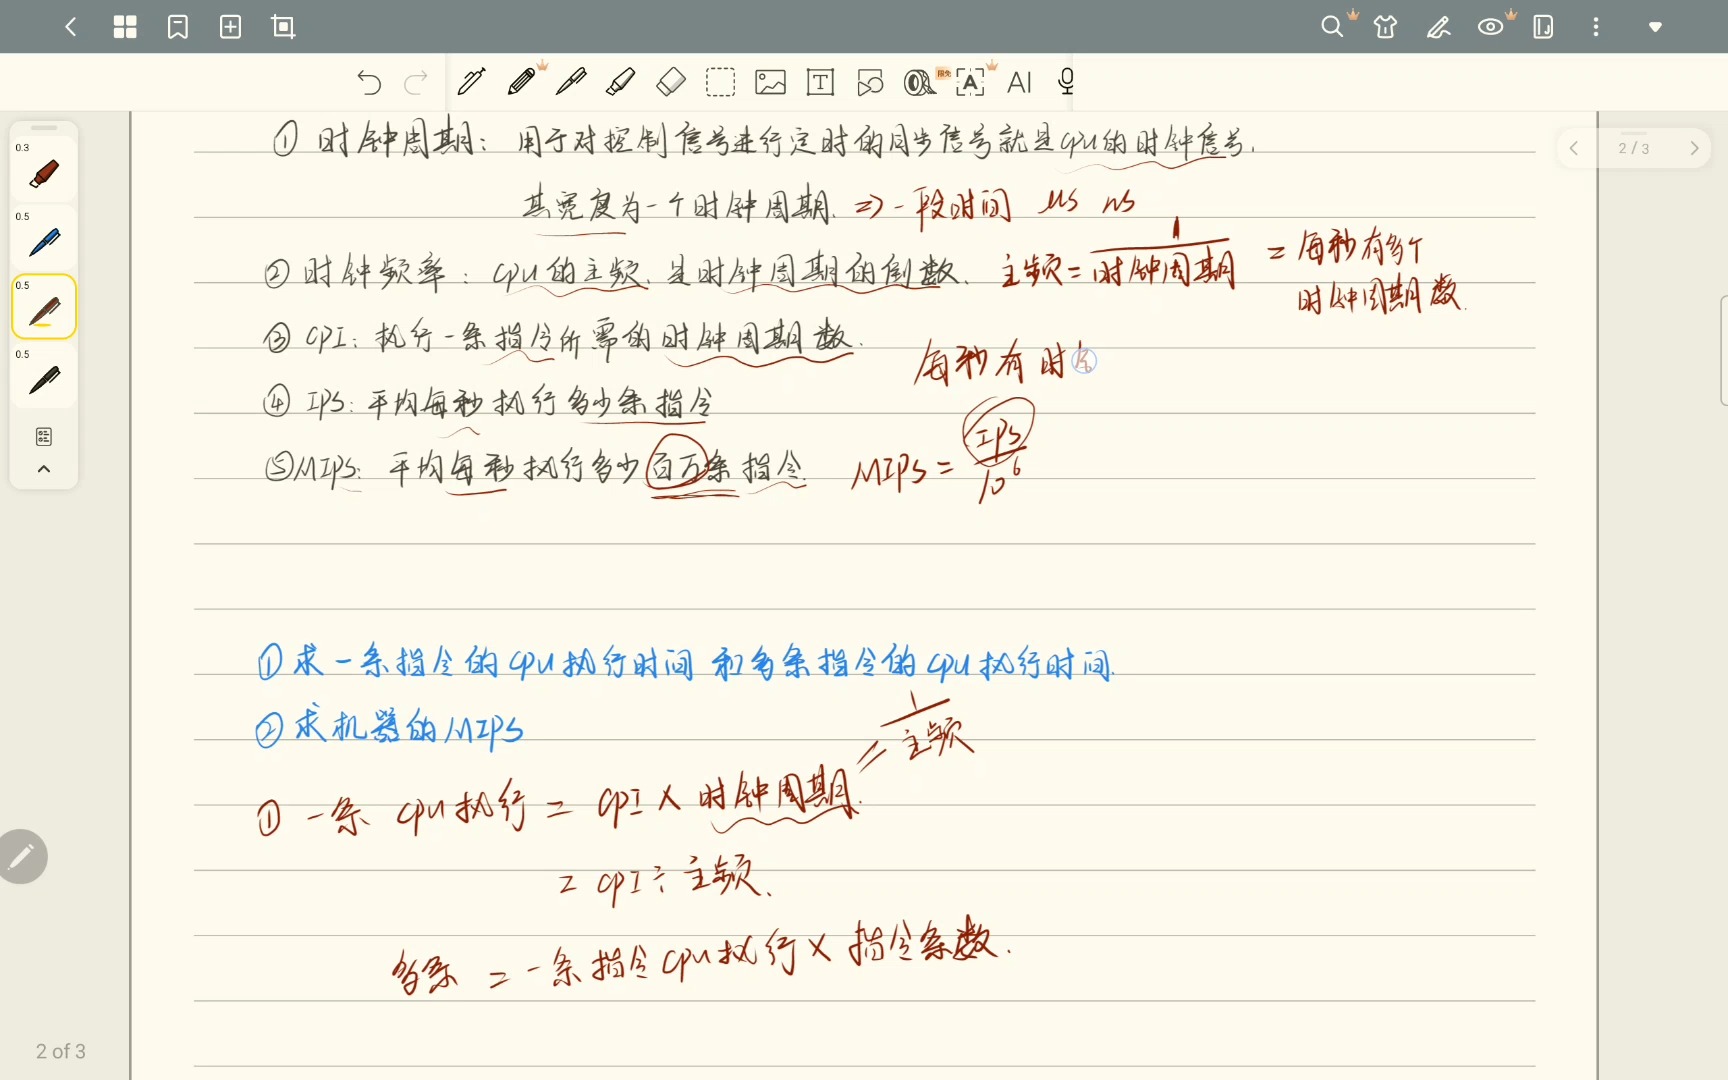 0.3
0.5
0.5
0.5
限免
A
T
AI
2 / 3
① 时钟周期：用于对控制信号进行定时的同步信号就是CPU的时钟信号.
其宽度为一个时钟周期. => 一段时间 μs ns
② 时钟频率：CPU的主频.是时钟周期的倒数. 主频 = 1 / 时钟周期 = 每秒有多个
时钟周期数.
③ CPI：执行一条指令所需的时钟周期数.
每秒有时
④ IPS：平均每秒执行多少条指令
⑤ MIPS：平均每秒执行多少百万条指令. MIPS = IPS / 10⁶
① 求一条指令的CPU执行时间和多条指令的CPU执行时间.
② 求机器的MIPS
= 1 / 主频
① 一条 CPU执行 = CPI × 时钟周期.
= CPI ÷ 主频.
多条 = 一条指令CPU执行 × 指令条数.
2 of 3